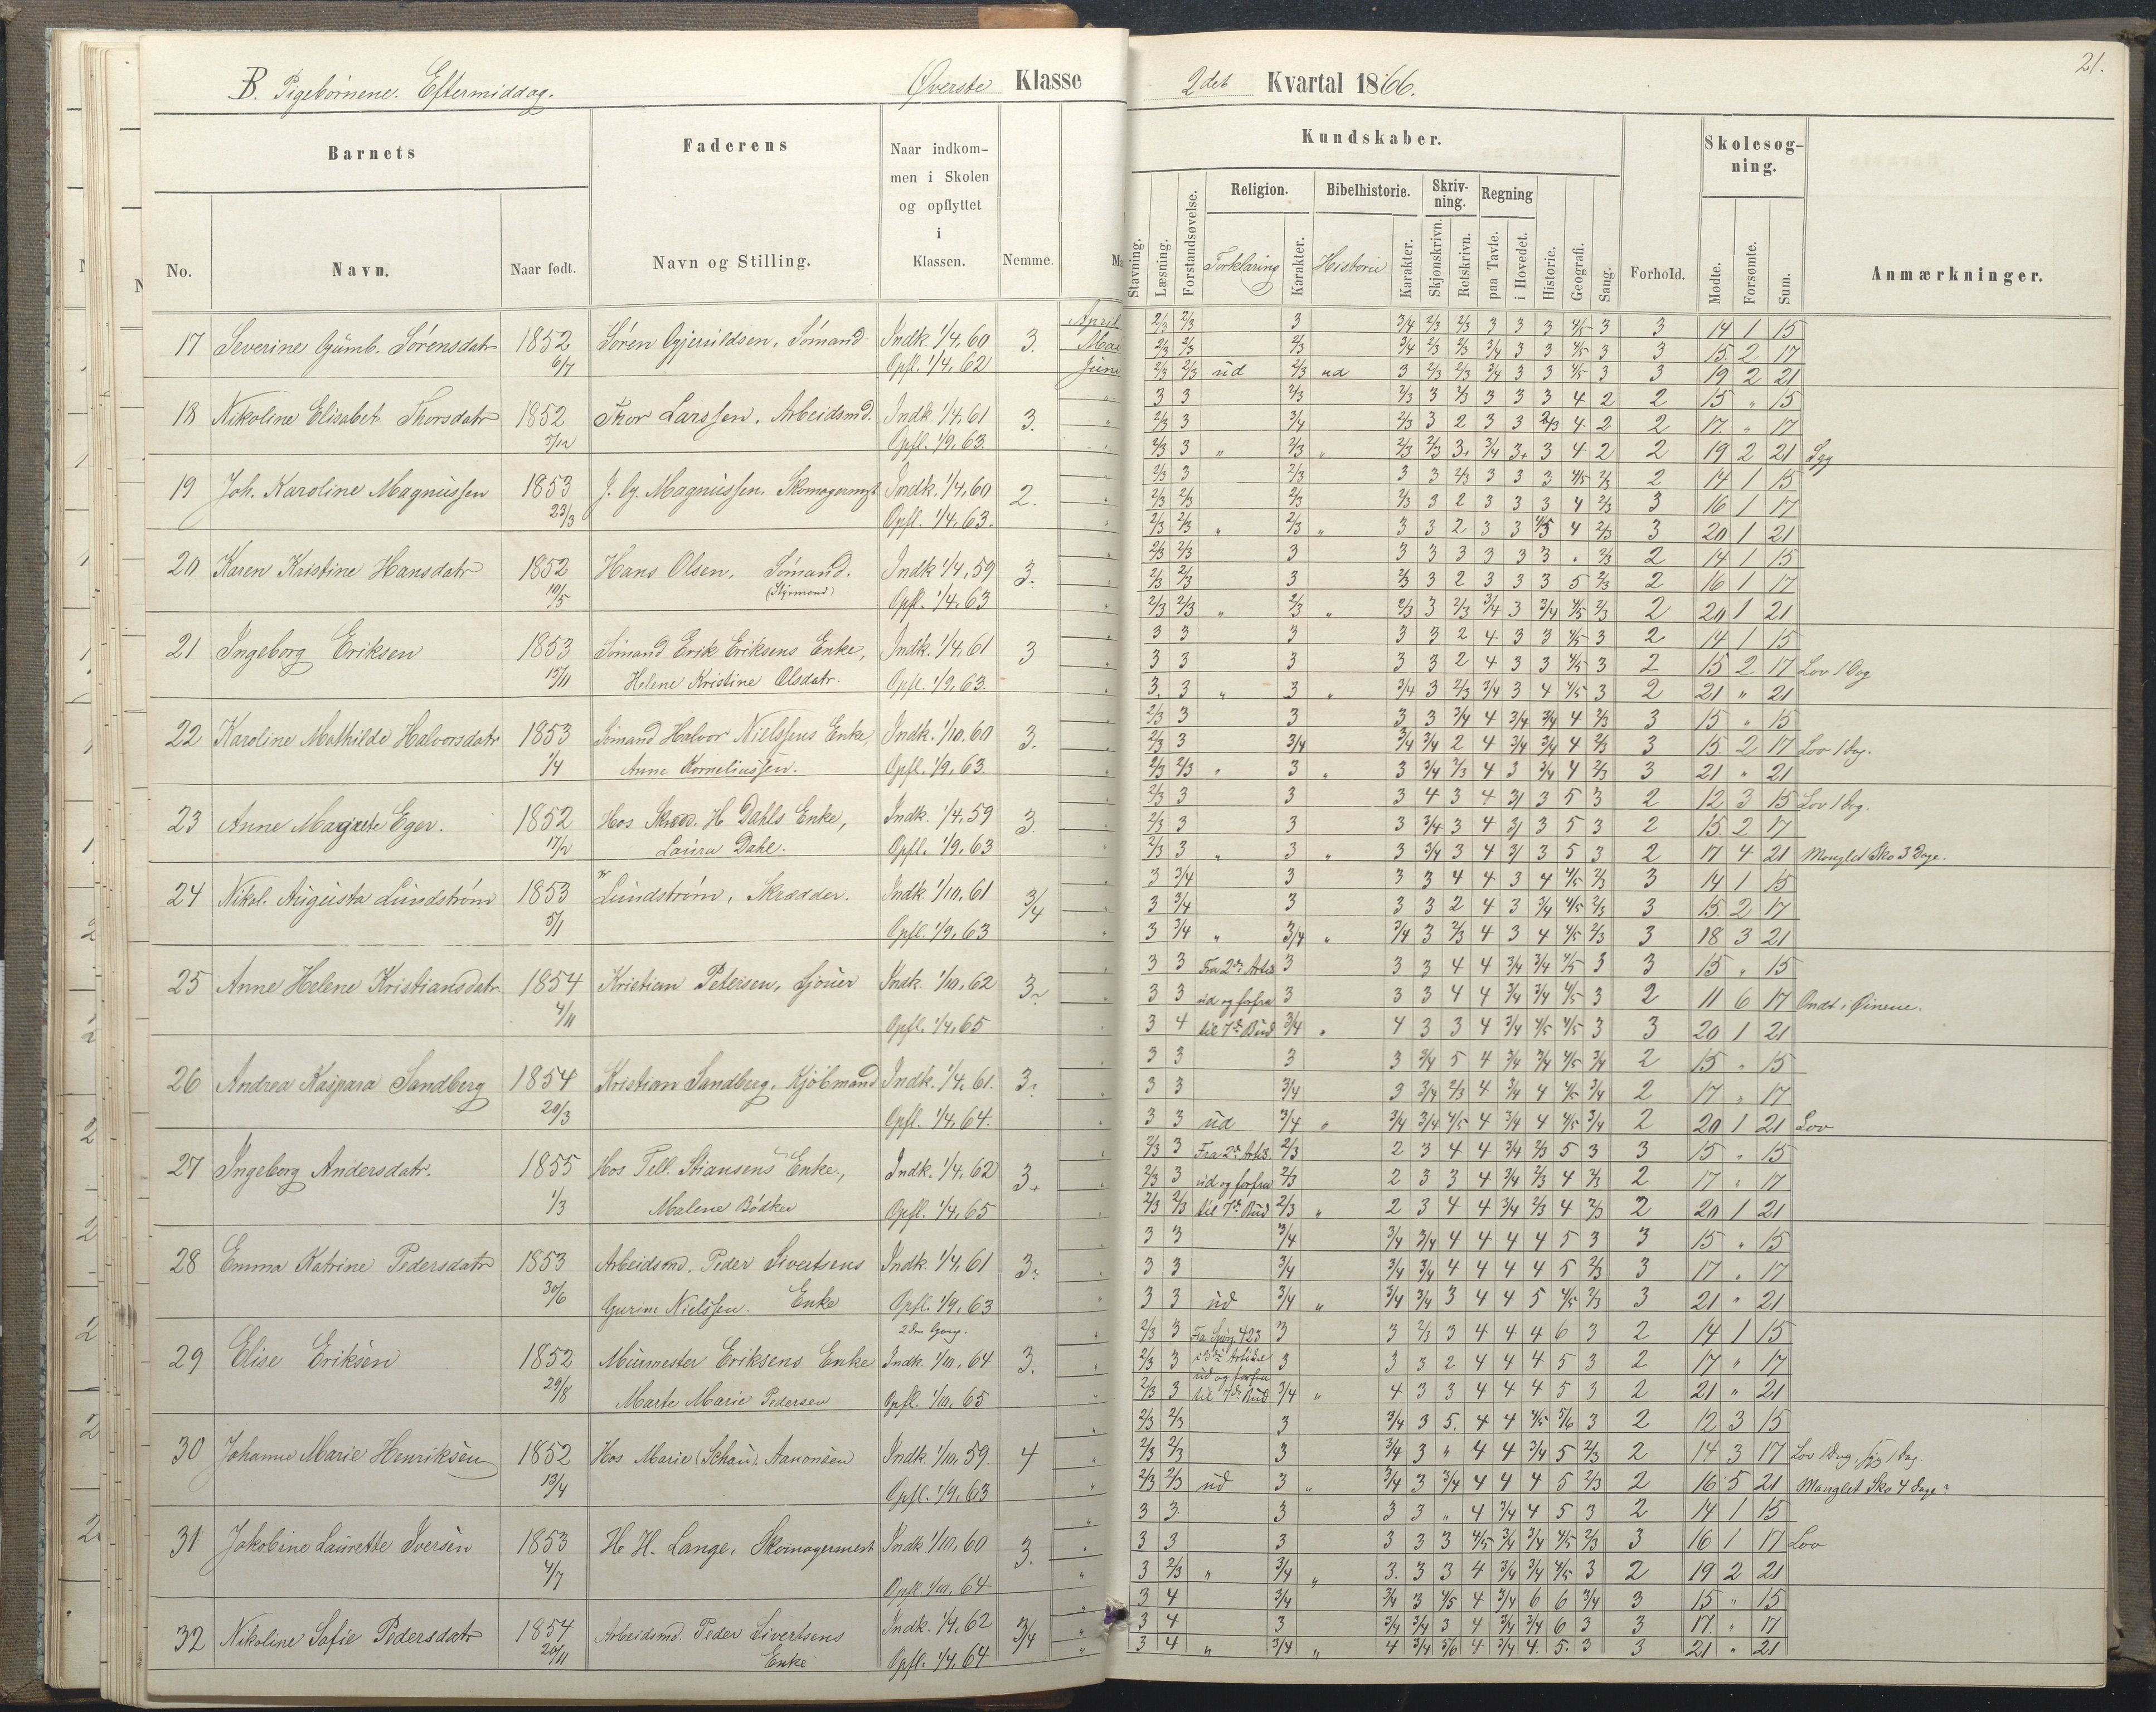 B. Pigebørnene. Eftermiddag. Øverste Klasse
2det Kvartal 1866.
21.
Barnets
Faderens
Naar indkom-
men i Skolen
og opflyttet
i
Klassen.
Nemme.
No. Navn. Naar født. Navn og Stilling.
Kundskaber.
Stavning. Læsning. Forstandsøvelse. Religion. Forklaring Karakter. Bibelhistorie. Historie Karakter. Skriv-
ning. Skjønskrivn. Retskrivn. Regning paa Tavle. i Hovedet. Historie. Geografi. Sang.
Forhold.
Skolesøg-
ning.
Mødte. Forsømte. Sum.
Anmærkninger.
17 Severine Gumb. Sørensdatr 1852 6/7 Søren Sømand Indk. 1/4. 60 3. April
Opfl. 1/4. 62 Mai
Juni
18 Nikoline Elisabet Thorsdatr 1852 Thor Larssen, Arbeidsmd. Indk. 1/4. 61 3.
Opfl. 1/9. 63.
19 Joh. Karoline Magnussen 1853 23/3 J. G. Magnussen. Skomagermst Indk. 1/4. 60 2.
Opfl. 1/4. 63.
20 Karen Kristine Hansdatr 1852 10/5 Hans Olsen, Sømand. Indk 1/4. 59 3.
(Styrmand) Opfl. 1/4. 63
21 Ingeborg Eriksen 1853 15/11 Sømand Erik Eriksens Enke, Indk. 1/4. 61 3
Helene Kristine Olsdatr. Opfl. 1/9. 63.
22 Karoline Mathilde Halvorsdatr 1853 1/4 Sømand Halvor Nielssens Enke, Indk. 1/10. 60 3.
Anne Korneliussen. Opfl. 1/9. 63.
23 Anne Margrete Eger. 1852 17/2 Hos H Dahls Enke, Indk. 1/4. 59 3.
Laura Dahl. Opfl. 1/9. 63
24 Nikol. Augusta Lundstrøm 1853 5/1 Lundstrøm, Skrædder. Indk. 1/10. 61 3/4
Opfl. 1/9. 63
25 Anne Helene Kristiansdatr 1854 4/11 Kristian Petersen, Gjøuer Indk. 1/10. 62 3
Opfl. 1/4. 65
26 Andrea Kaspara Sandberg 1854 20/3 Kristian Sandberg, Kjøbmand Indk. 1/4. 61. 3.
Opfl. 1/4. 64.
27 Ingeborg Andersdatr. 1855 1/3 Hos Tell. Stiansens Enke, Indk. 1/4. 62 3+
Malene Bødker Opfl. 1/4. 65
28 Emma Katrine Pedersdatr 1853 30/6 Arbeidsmd. Peder Sivertsens Indk. 1/4. 61 3
Gurine Nielssen. Enke Opfl. 1/9. 63
2den Gang.
29 Elise Eriksen 1852 29/8 Murmester Eriksens Enke Indk. 1/10. 64 3.
Marte Marie Pedersen Opfl. 1/10. 65
30 Johanne Marie Henriksen 1852 13/4 Hos Marie (Schau) Aanonsen Indk 1/10. 59 4
Opfl. 1/9. 63
31 Jakobine Laurette Iversen 1853 4/7 H. H. Lange, Skomagermest Indk 1/10. 60 3.
Opfl. 1/10. 64
32 Nikoline Sofie Pedersdatr 1854 20/11 Arbeidsmd. Peder Sivertsens Indk. 1/4. 62 3/4
Enke Opfl. 1/4. 64
2/3 2/3 3 3/4 2/3 2/3 3 3 3 4/5 3 3 14 1 15
2/3 2/3 2/3 3/4 2/3 2/3 3/4 3 3 4/5 3 3 15. 2 17
2/3 2/3 ud 2/3 ud 3 2/3 2/3 3/4 3 3 4/5 3 3 19 2 21
3 3 2/3 2/3 3 2/3 3 3 3 4 2 2 15 " 15
2/3 3 3/4 2/3 3 2 3 3 2/3 4 2 2 17. " 17
2/3 3 " 2/3 " 2/3 2/3 3+ 3/4 3+ 3 4 2 2 19 2 21 Syg
2/3 3 2/3 3 3 2/3 3 3 3 4/5 2/3 2 14 1 15
2/3 2/3 2/3 2/3 3 2 3 3 3 4 2/3 3 16 1 17
2/3 2/3 " 2/3 " 3 3 2 3 3 4/5 4 2/3 3 20 1 21
2/3 2/3 3 3 3 3 3 3 3 . 2/3 2 14 1 15
2/3 2/3 3 2/3 3 2 3 3 3 5 2/3 2 16 1 17
2/3 2/3 " 2/3 " 2/3 3 2/3 3/4 3 3/4 4/5 2/3 2 20 1 21
3 3 3 3 3 2 4 3 3 4/5 3 2 14 1 15
3 3 3 3 3 2 4 3 3 4/5 3 2 15 2 17 Lov 1 Dag
3. 3 " 3 " 3/4 3 2/3 3/4 3 4 4/5 3 2 21 " 21
2/3 3 3 3 3 3/4 4 3/4 3/4 4 2/3 3 15 " 15
2/3 3 3/4 3/4 3/4 2 4 3/4 3/4 4 2/3 3 15 2 17 Lov 1 Dag.
2/3 2/3 " 3 " 3 3/4 2/3 4 3 3/4 4 2/3 3 21 " 21
2/3 3 3 3 4 3 4 3 3 5 3 2 12 3 15 Lov 1 Dag.
2/3 3 3 3 3/4 3 4 3 3 5 3 2 15 2 17
2/3 3 " 3 " 3 3/4 3 4 3 3 5 3 2 17 4 21 Manglet Sko 3 Dage.
3 3/4 3 3 3 4 4 3 4 4/5 2/3 3 14 1 15
3 3/4 3 3 3 2 4 3 3/4 4/5 2/3 3 15. 2 17
3 3/4 " 3/4 " 3/4 3 2/3 4 3 4 4/5 2/3 3 18 3 21
3 3 Fra 2den Artk. 3 3 3 4 4 3/4 3/4 4/5 3 3 15 " 15
3 3 ud og forfra 3 3 3 4 4 3/4 3/4 4/5 3 2 11 6 17 Ondt i Øinene.
3 4 til 7de Bud 3/4 " 4 3 3 4 3/4 4/5 4/5 3 3 20 1 21
3 3 3 3 3/4 5 4 3/4 3/4 4/5 3/4 2 15 " 15
3 3 3/4 3 3/4 2/3 4 3/4 4 4/5 3/4 2 17 " 17
3 3 ud 3/4 " 3/4 3/4 4/5 4 3/4 4 4/5 3/4 2 20 1 21 Lov
2/3 3 Fra 2den Artk. 2/3 2 3 4 4 3/4 2/3 5 3 3 15 " 15
2/3 3 ud og forfra 2/3 2 3 3 4 3/4 2/3 4 2/3 2 17 " 17
2/3 2/3 til 7de Bud 2/3 " 2 3 4 4 3/4 2/3 4 2/3 2 20 1 21
3 3 3/4 3/4 3/4 4 4 4 4 5 3 3 15 " 15
3 3 3/4 3/4 3/4 4 4 4 4 5 2/3 3 17 " 17
3 3 ud 3/4 " 3/4 3/4 3 4 4 5 4/5 2/3 3 21 " 21
2/3 3 Fra Spørg. 423 3 3 2/3 3 4 4 4 6 3 2 14 1 15
2/3 3 i 3die Artikel 3 3 3 2 4 4 4 5 3 2 17 " 17
ud og forfra
2/3 3 til 7de Bud 3/4 " 4 3 3 4 4 4 5 3 2 21 " 21
2/3 2/3 3 3/4 3 5. 4 4 4/5 5/6 3 2 12 3 15
2/3 2/3 3 3/4 3 " 4 4 3/4 5 2/3 2 14 3 17 Lov 1 Dag, syg 1 Dag.
2/3 2/3 ud 3 " 3/4 3 3/4 4 4 4 5 2/3 2 16 5 21 Manglet Sko 4 Dage
3 3 3 3 3 " 4 3/4 4 5 3 2 14 1 15
3 3 3 3 3 3 4/5 3/4 3/4 4/5 2/3 3 16 1 17 Lov
3 2/3 " 3/4 " 3. 3 3 4 3/4 3/4 4/5 3 2 19 2 21
3 4 3/4 3/4 3 4/5 4 3/4 6 6 3/4 3 15 " 15
3 4 3 3/4 3/4 3 4 3/4 3/4 6 3 3 17. " 17
3 4 " 3/4 " 4 3/4 5/6 4 3/4 4. 5. 3 3 21 " 21